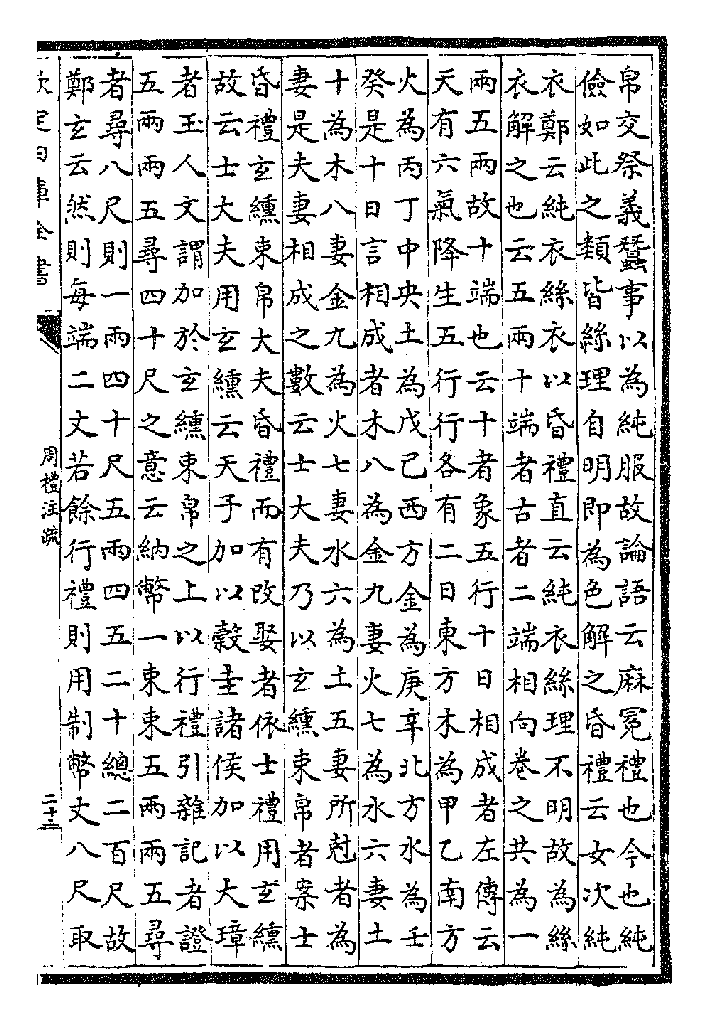 帛交祭義蠶事以為純服故論語云麻冕禮也今也純
儉如此之類皆絲理自明即為色解之昏禮云女次純
衣鄭云純衣絲衣以昏禮直云純衣絲理不明故為絲
衣解之也云五兩十端者古者二端相向卷之共為一
兩五兩故十端也云十者象五行十日相成者左傳云
天有六氣降生五行行各有二日東方木為甲乙南方
火為丙丁中央土為戊己西方金為庚辛北方水為壬
癸是十日言相成者木八為金九妻火七為水六妻土
十為木八妻金九為火七妻水六為土五妻所尅者為
妻是夫妻相成之數云士大夫乃以玄纁束帛者案士
昏禮玄纁束帛大夫昏禮而有改娶者依士禮用玄纁
故云士大夫用玄纁云天子加以穀圭諸侯加以大璋
者玉人文謂加於玄纁束帛之上以行禮引雜記者證
五兩兩五尋四十尺之意云納幣一束束五兩兩五尋
者尋八尺則一兩四十尺五兩四五二十總二百尺故
鄭玄云然則每端二丈若餘行禮則用制幣丈八尺取
欽定四庫全書
周禮注疏
二十三